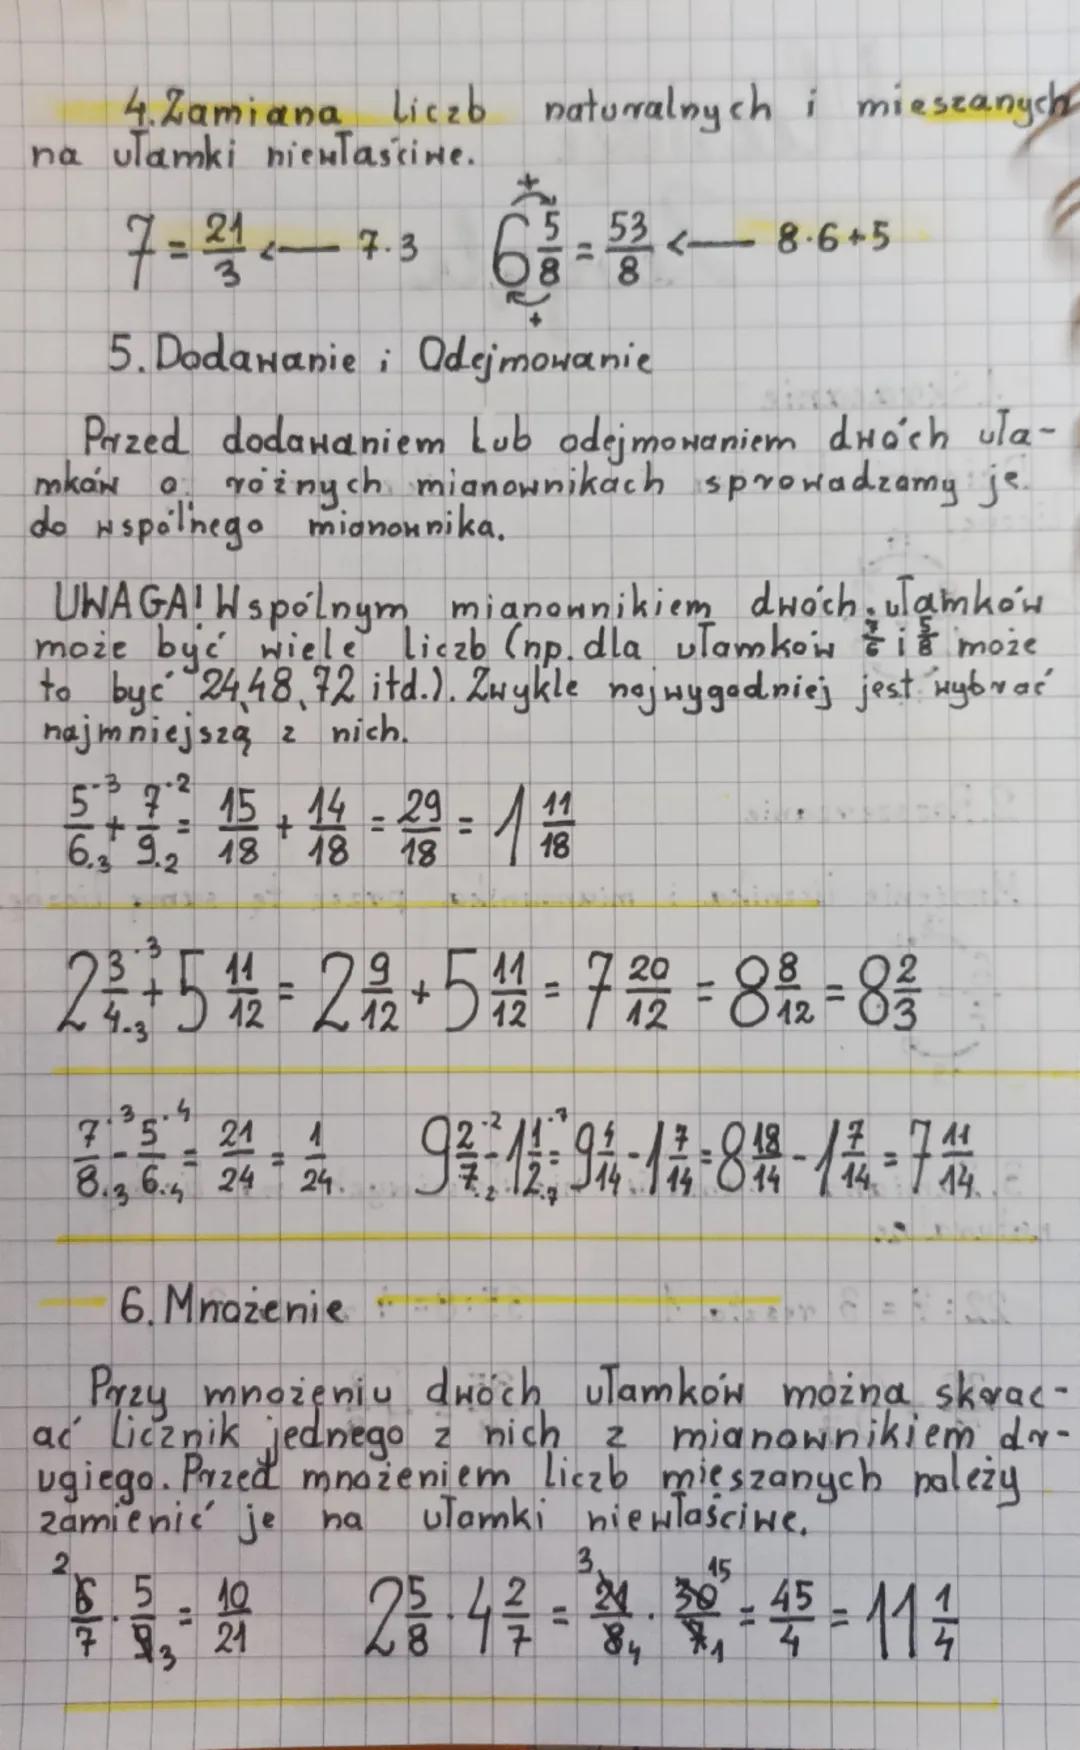 4. Zamiana liczb naturalnych i mieszanych
na ułamki niewłaściwe.
7 = 21/3 <— 7·3    6 5/8 = 53/8 <— 8·6+5
+
+
5. Dodawanie i Odejmowanie
Przed dodawaniem lub odejmowaniem dwóch uła-
mków o różnych mianownikach sprowadzamy je
do wspólnego mianownika.
UWAGA! Wspólnym mianownikiem dwóch ułamków
może być wiele liczb (np. dla ułamków 7/6 i 5/8 może
to być 24, 48, 72 itd.). Zwykle najwygodniej jest wybrać
najmniejszą z nich.
5·3/6·3 + 7·2/9·2 = 15/18 + 14/18 = 29/18 = 1 11/18
2 3·3/4·3 + 5 11/12 = 2 9/12 + 5 11/12 = 7 20/12 = 8 8/12 = 8 2/3
7·3/8·3 - 5·4/6·4 = 21/24 = 1/24.    9 2·2/7·2 - 1 1·7/2·7 = 9 4/14 - 1 7/14 = 8 18/14 - 1 7/14 = 7 11/14.
6. Mnożenie
Przy mnożeniu dwóch ułamków można skrac-
ać licznik jednego z nich z mianownikiem dr-
ugiego. Przed mnożeniem liczb mieszanych należy
zamienić je na ułamki niewłaściwe.
2 6/7 · 5/9 3 = 10/21    2 5/8 · 4 2/7 = 3 21/8 4 · 30 15/7 1 = 45/4 = 11 1/4